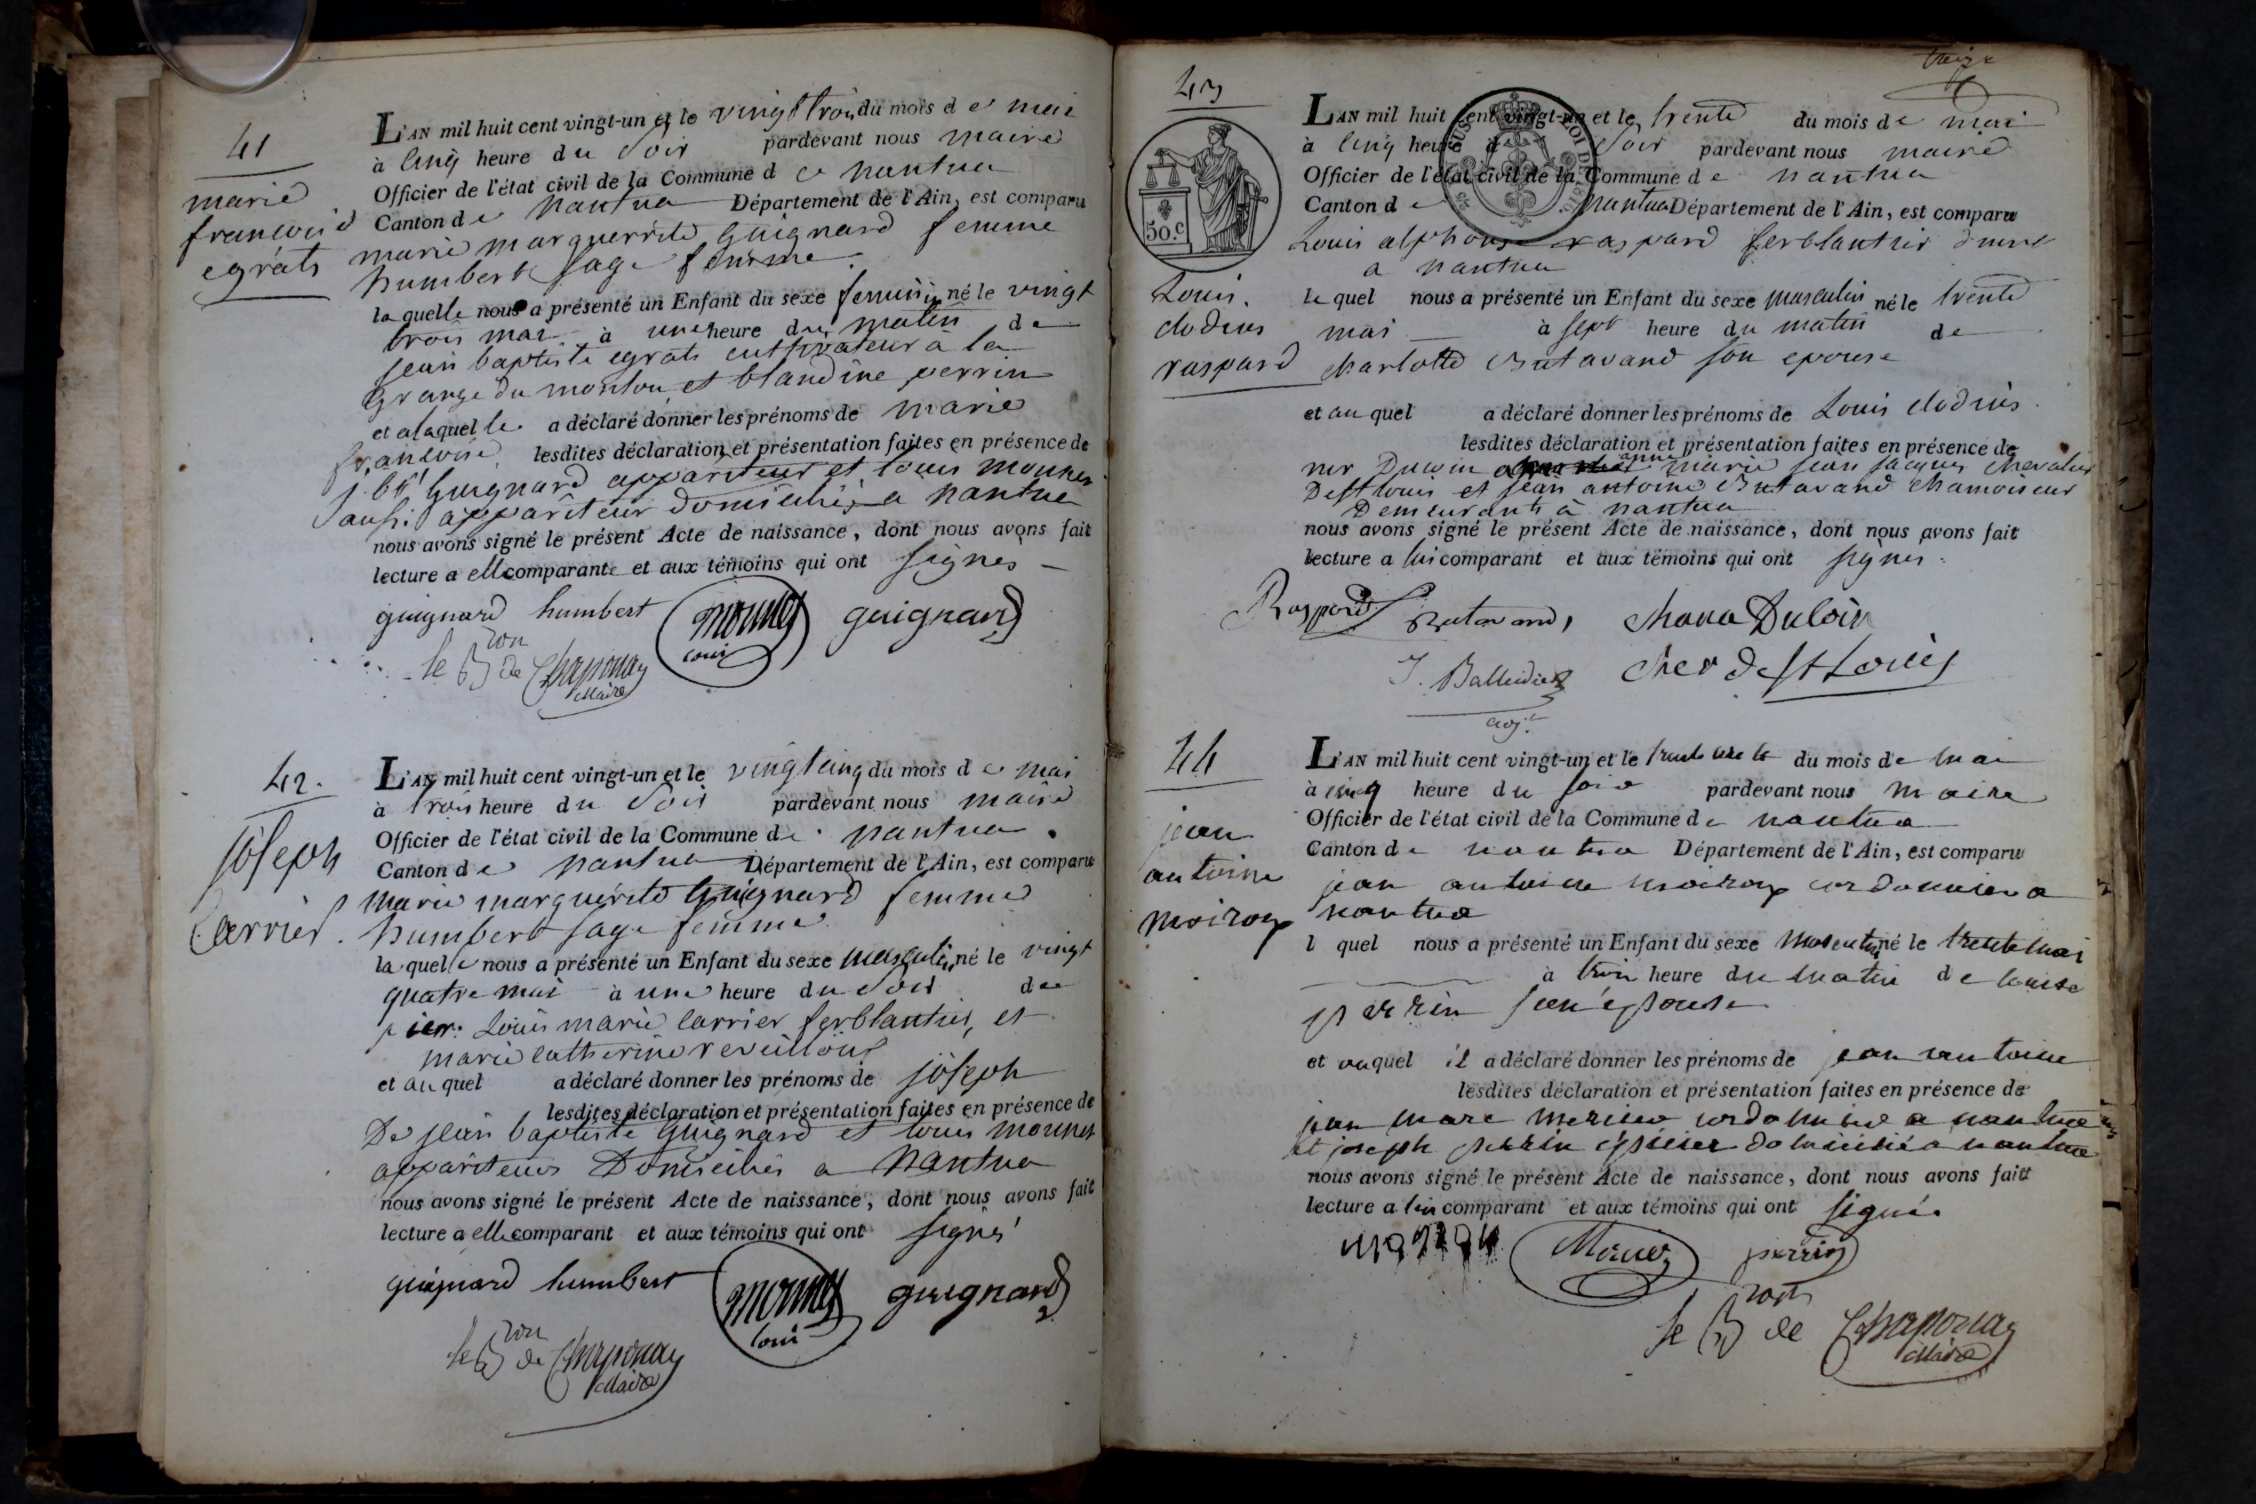 41
marie
francoise
egrats
L'AN mil huit cent vingt-un et le vingt trois du mois de mai
à cinq heure du soir pardevant nous maire
Officier de l'état civil de la Commune de nantua
Canton de nantua Département de l'Ain, est comparu
marie marguerite Guignard femme
humbert sage femme
la quelle nous a présenté un Enfant du sexe feminin né le vingt
trois mai à une heure du matin de
jean baptiste egrats cultivateur a la
Grange du et blandine perrin
et a laquelle a déclaré donner les prénoms de marie
francoise lesdites déclaration et présentation faites en présence de
j. bte Guignard appariteur et louis mounes
aussi appariteur domiciliés a nantua
nous avons signé le présent Acte de naissance, dont nous avons fait
lecture a elle comparante et aux témoins qui ont signés
guignard humbert mounes louis guignard
le Bron de Chaponay
Maire
42.
joseph
Carrier.
L'AN mil huit cent vingt-un et le vingt cinq du mois de mai
à trois heure du soir pardevant nous maire
Officier de l'état civil de la Commune de nantua.
Canton de nantua Département de l'Ain, est comparu
marie marguerite Guignard femme
humbert sage femme
la quelle nous a présenté un Enfant du sexe masculin né le vingt
quatre mai à une heure du soir de
Louis marie carrier ferblantier, et
marie catherine
et au quel a déclaré donner les prénoms de joseph
lesdites déclaration et présentation faites en présence de
De jean baptiste Guignard et louis mounes
appariteurs Domiciliés a nantua
nous avons signé le présent Acte de naissance, dont nous avons fait
lecture a elle comparant et aux témoins qui ont signés
guignard humbert mounes louis guignard
le Bron de Chaponay
Maire
treize
43
50.c
Louis.
clodius
raspard
L'AN mil huit cent vingt-un et le trente du mois de mai
à cinq heure du soir pardevant nous maire
Officier de l'état civil de la Commune de nantua
Canton de nantua Département de l'Ain, est comparu
Louis alphonse raspard ferblantier
a nantua
le quel nous a présenté un Enfant du sexe masculin né le trente
mai à sept heure du matin de
charlotte Butavand son epouse
et au quel a déclaré donner les prénoms de Louis clodius.
lesdites déclaration et présentation faites en présence de
anne marie jean jacques chevalier
De st louis et jean antoine Butavand chamoiseur
Demeurants à nantua
nous avons signé le présent Acte de naissance, dont nous avons fait
lecture a lui comparant et aux témoins qui ont signés.
Raspard Butavand,
cher de st Louis
adj.t
44
jean
antoine
moiroux
L'AN mil huit cent vingt-un et le trente un du mois de mai
à cinq heure du soir pardevant nous maire
Officier de l'état civil de la Commune de nantua
Canton de nantua Département de l'Ain, est comparu
jean antoine moiroux cordonnier a
nantua
l quel nous a présenté un Enfant du sexe masculin né le trente mai
à trois heure du matin de louise
perrin son épouse
et auquel il a déclaré donner les prénoms de jean antoine
lesdites déclaration et présentation faites en présence de
jean marc mercier cordonnier a nantua
et joseph perrin épicier domicilié a nantua
nous avons signé le présent Acte de naissance, dont nous avons fait
lecture a lui comparant et aux témoins qui ont signés
perrin
le Bron de Chaponay
Maire